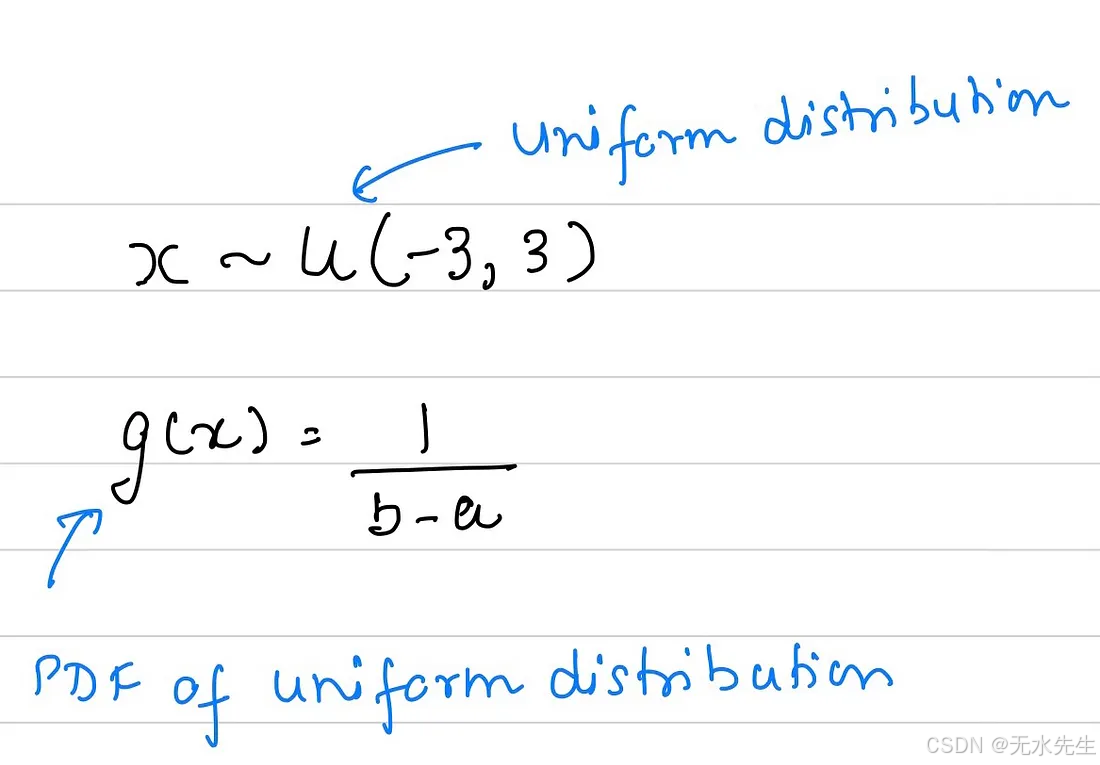 uniform distribution
x ~ U(-3, 3)
g(x) = 1
b-a
PDF of uniform distribution
CSDN @无水先生